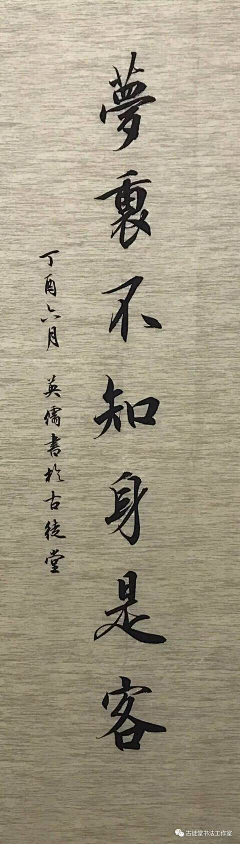 夢裏不知身是客
丁酉六月 英儒書於古徒堂
古徒堂书法工作室